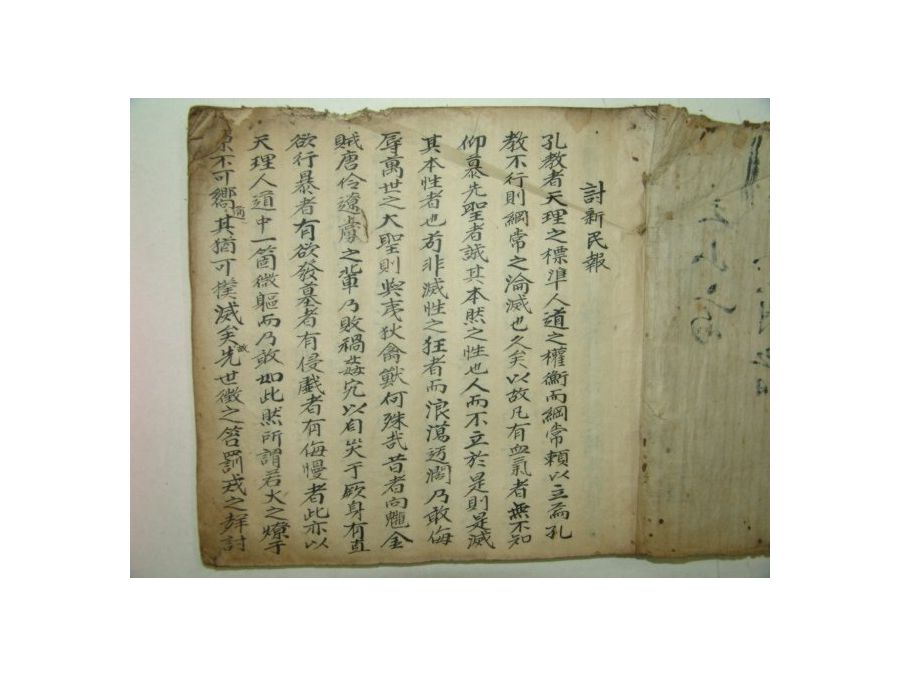 討新民報
孔教者天理之標準人道之權衡而綱常賴以立焉孔
教不行則綱常之淪滅也久矣以故凡有血氣者無不知
仰慕先聖者誠其本然之性也人而不立於是則是滅
其本性者也苟非滅性之狂者而浪蕩迃濶乃敢侮
辱萬世之大聖則與夷狄禽獸何殊哉昔者向魋金
賊唐伶遼 之輩乃敗禍姦宄以自災于厥身有直
欲行暴者有欲發墓者有侵戱者有侮慢者此亦以
天理人道中一箇微軀而乃敢如此然所謂若火之燎于
原不可嚮邇其猶可撲滅矣故先世徵之笞罰戎之 討